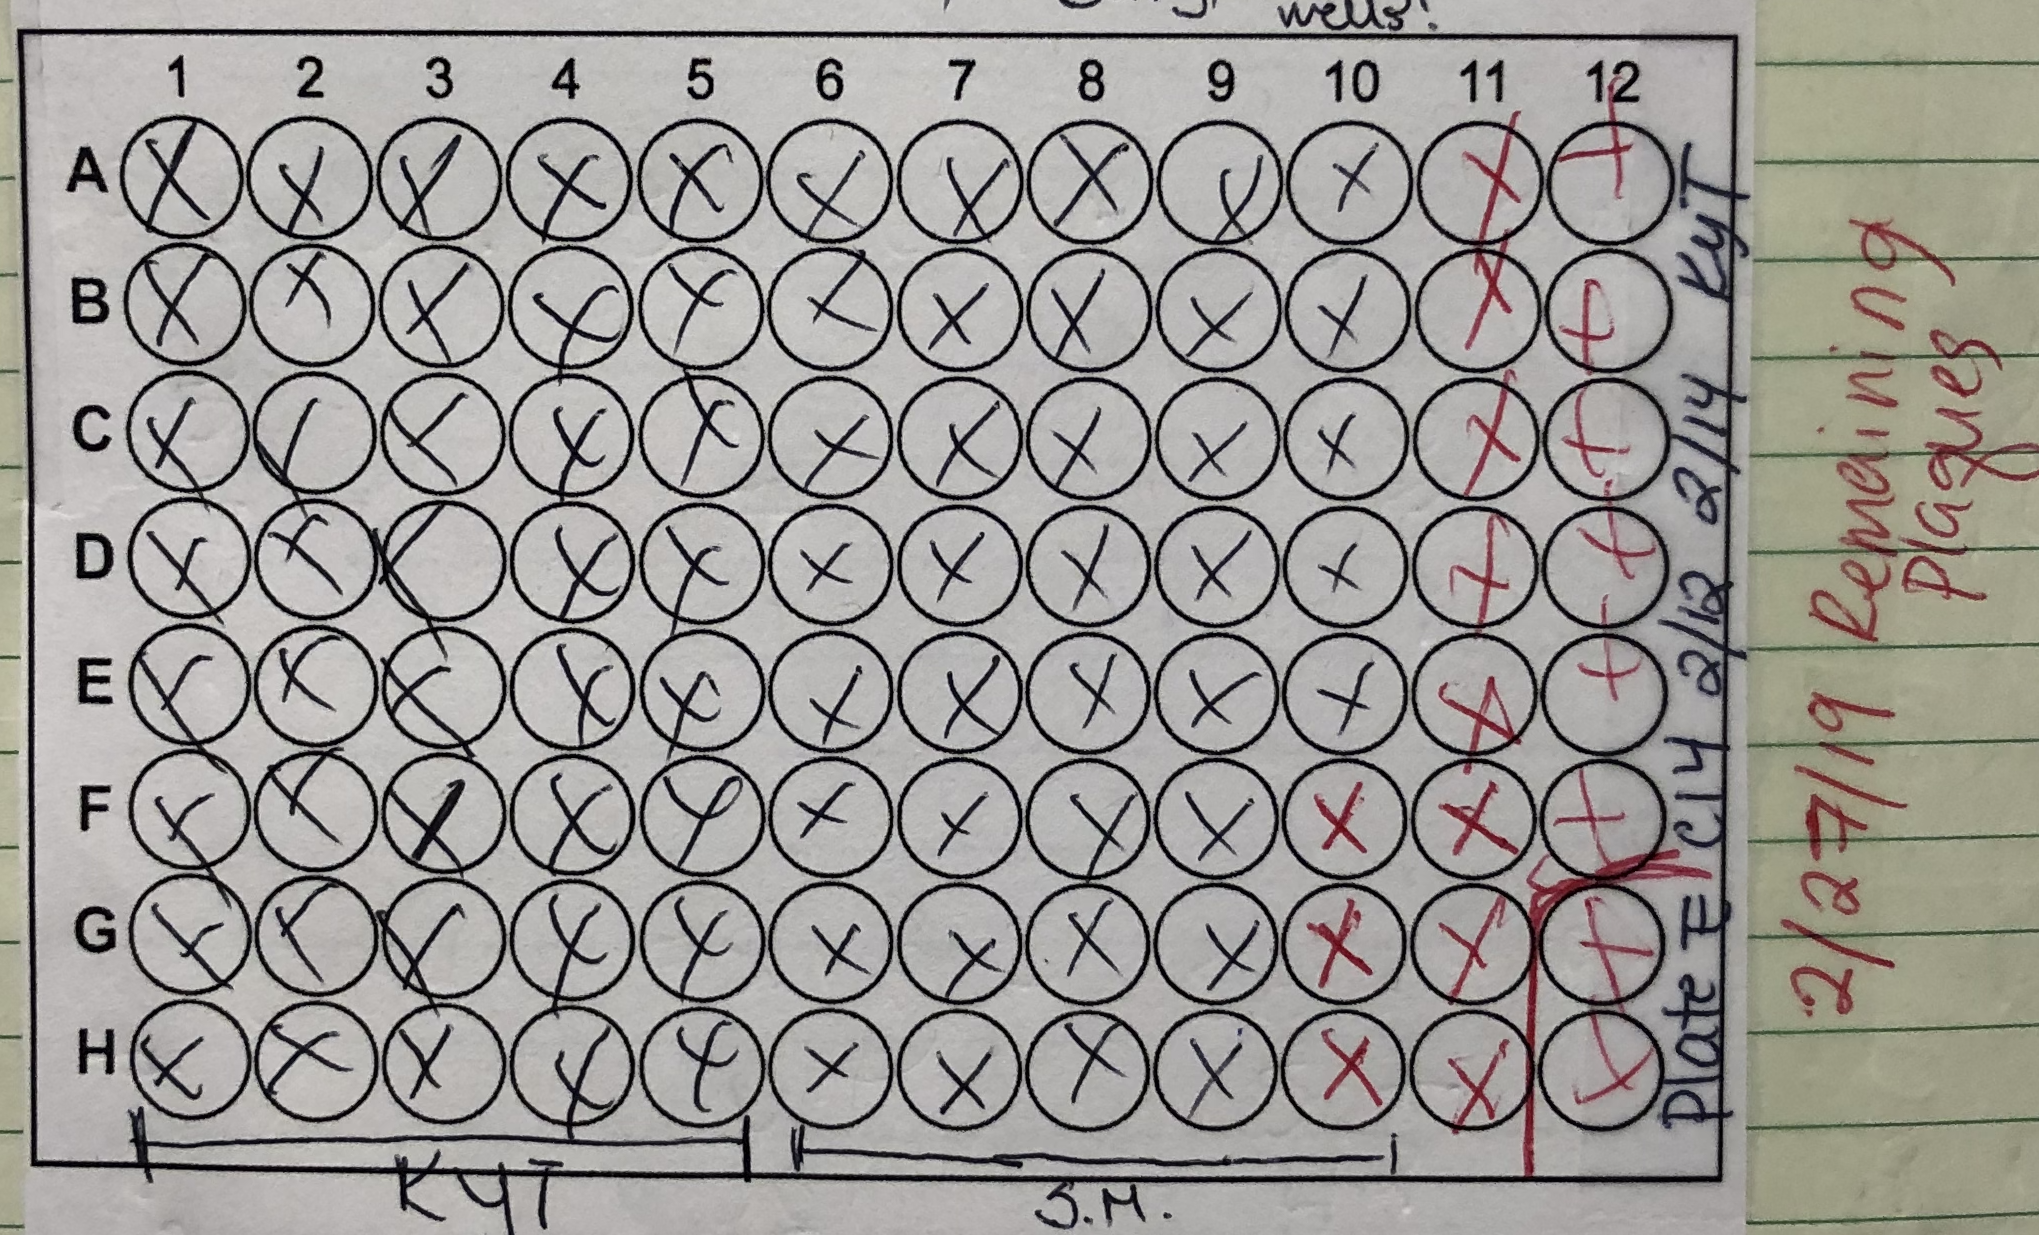 wells!
1 2 3 4 5 6 7 8 9 10 11 12
A
B
C
D
E
F
G
H
KYT
S.M.
Plate E C14 2/12 2/14 KyT
2/27/19 Remaining
Plaques